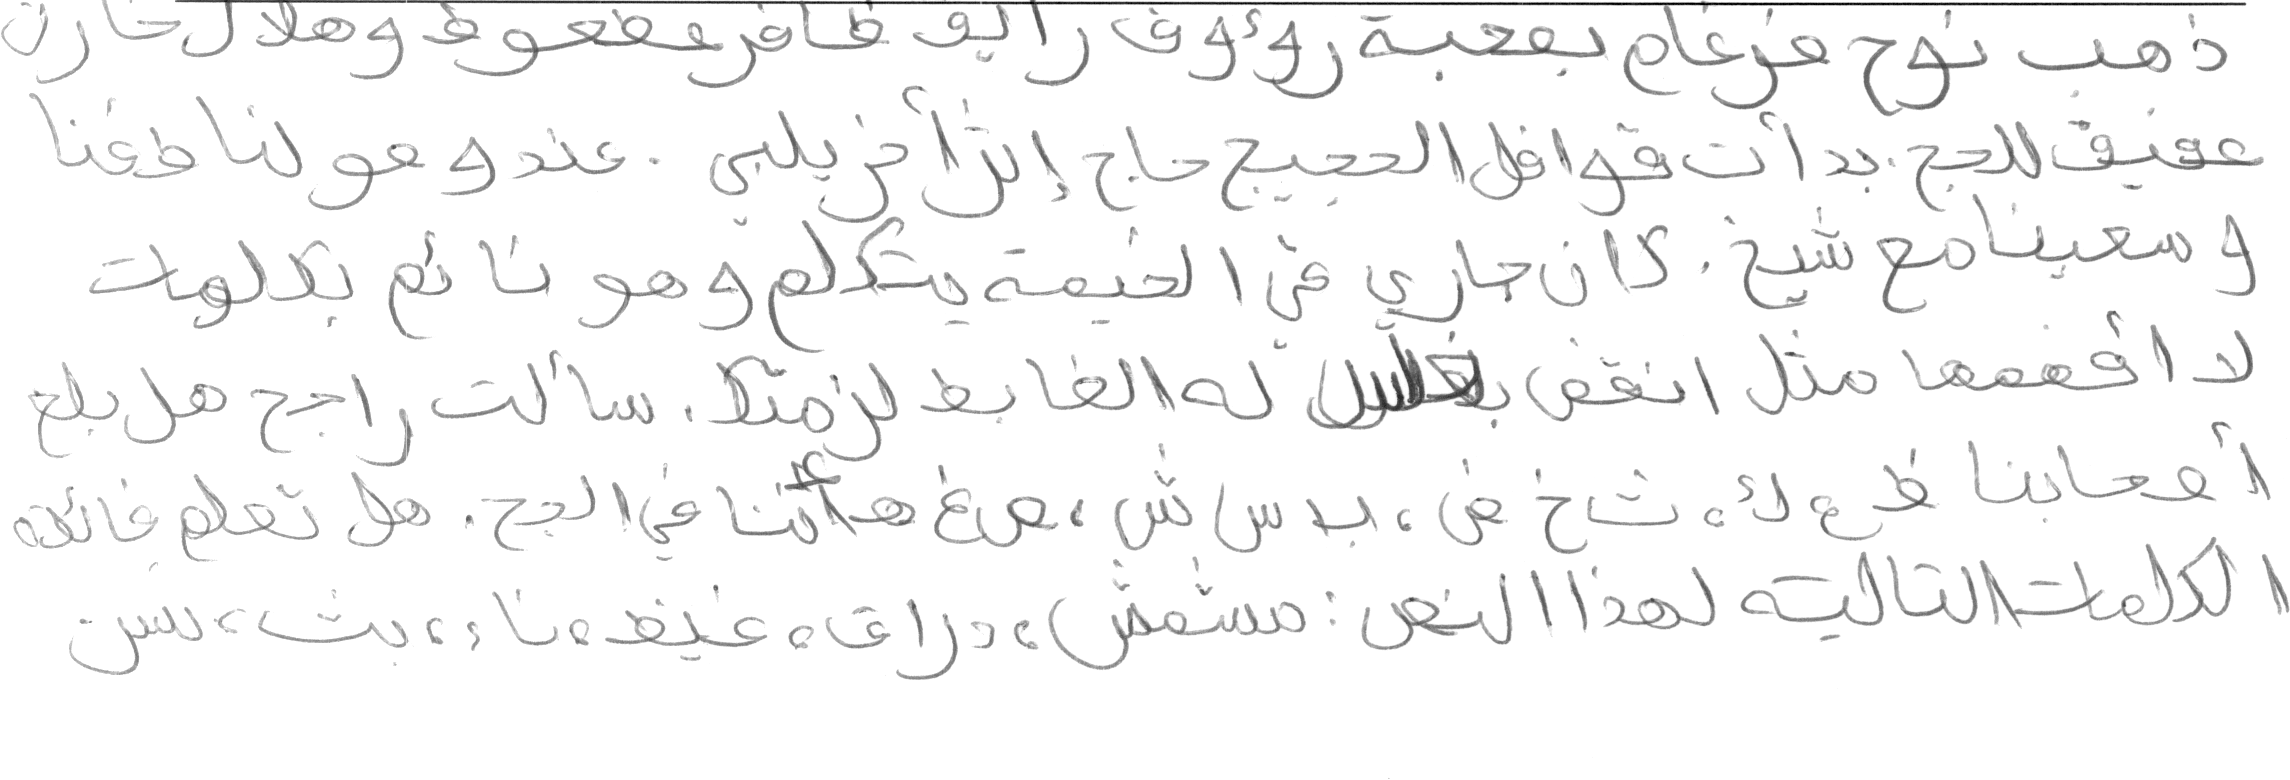 ذهب نوح ضرغام بصحبة رؤوف رايق ظافر عطعوط وهلال خازن
عفيف للحج. بدأت قوافل الحجيج حاج إثر أخر يلبي. عند وصولنا طفنا
وسعينا مع شيخ. كان جاري في الخيمة يتكلم وهو نائم بكلمات
لا أفهمها مثل انقض له الضابط لزمتك. سألت راجح هل بلغ
أصحابنا ظ ع ك، ث خ ض، ب س ش، ص غ ه أننا في الحج. هل تعلم فائدة
الكلمات التالية لهذا النص: مشمش، دراق، غليظ، ناء، بث، لسن